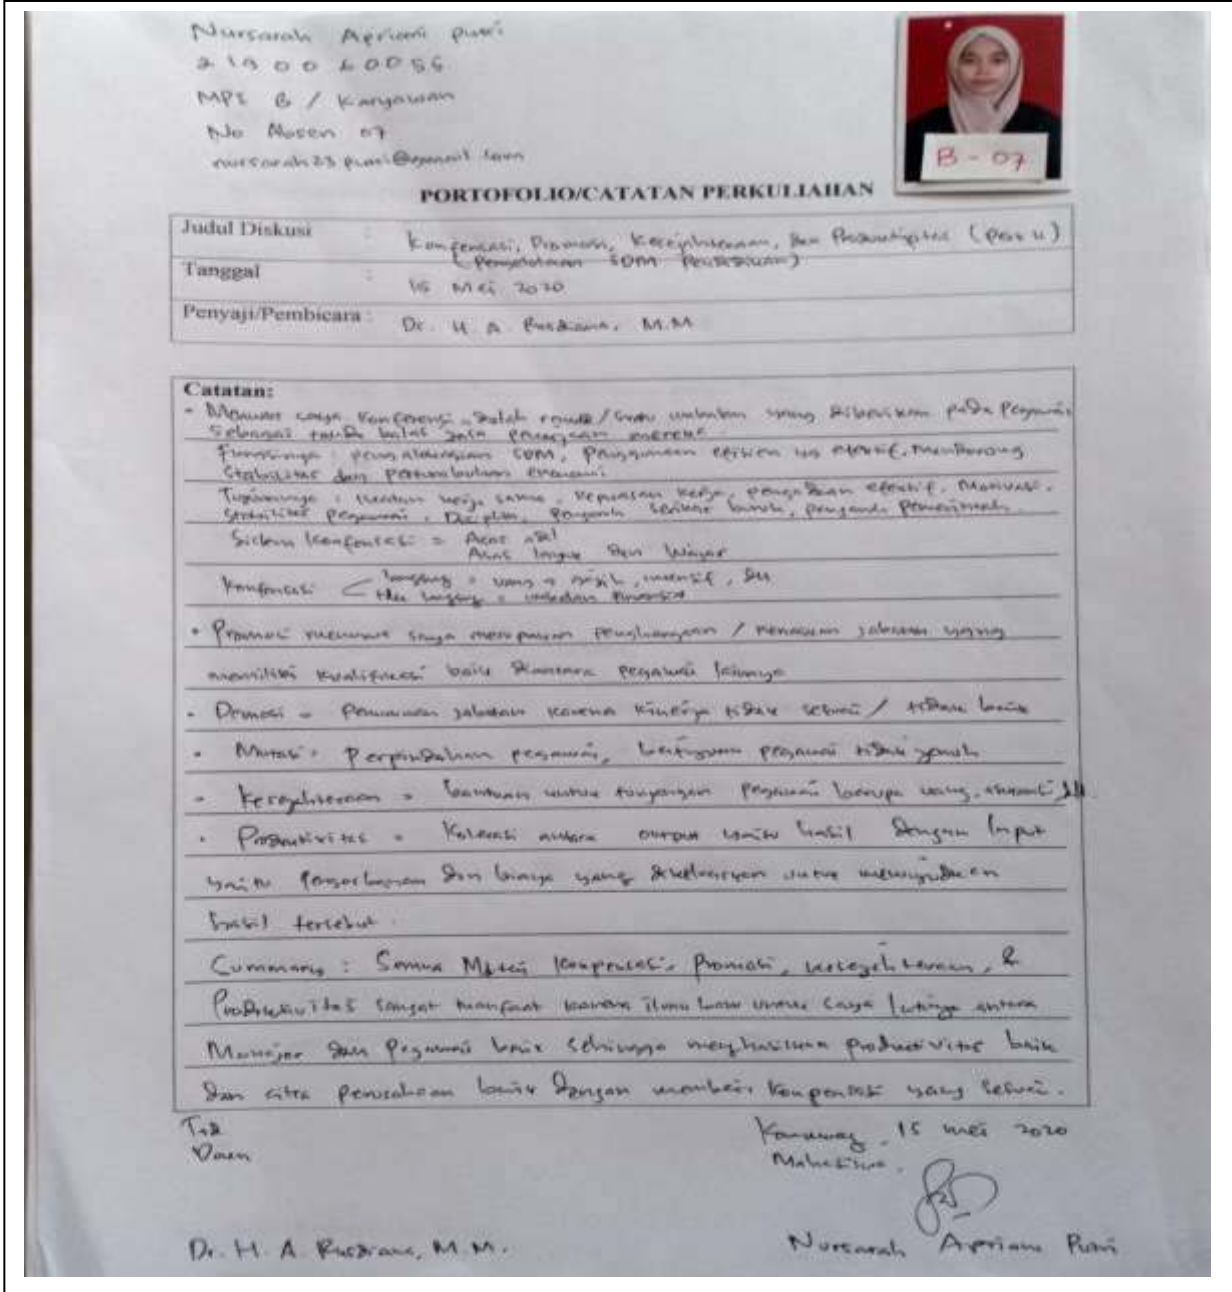 Nursarah Apriani Putri
MPI B / Karyawan
No Absen 07
B - 07
PORTOFOLIO/CATATAN PERKULIAHAN
Judul Diskusi :
Promosi, Kesejahteraan, dan Produktivitas
(Pengelolaan SDM Pendidikan)
Tanggal :
15 Mei 2020
Penyaji/Pembicara :
Dr. H. A. Rusdiana, M.M
Catatan:
- Menurut saya adalah yang diberikan pada Pegawai
Sebagai tanda balas jasa pekerjaan mereka
Fungsinya : pengalokasian SDM, penggunaan efisien efektif, Mendorong
Stabilitas dan pertumbuhan ekonomi
Tujuannya : ikatan kerja sama, kepuasan kerja, pengadaan efektif, Motivasi,
Stabilitas pegawai, Disiplin, Pengaruh serikat buruh, pengaruh Pemerintah.
Layak dan Wajar
• Promosi menurut saya merupakan penghargaan / kenaikan jabatan yang
memiliki kualifikasi baik diantara pegawai lainnya
- Demosi = Penurunan jabatan karena kinerja tidak sesuai / tidak baik
- Mutasi = Perpindahan pegawai, pegawai tidak jenuh
- Kesejahteraan = bantuan untuk tunjangan pegawai berupa uang,
• Produktivitas = antara output yaitu hasil dengan Input
yaitu pengorbanan dan biaya yang dikeluarkan untuk mewujudkan
hasil tersebut.
Summary : Semua Materi Kompensasi, Promosi, kesejahteraan, &
Produktivitas sangat manfaat karena ilmu baru untuk saya antara
Manajer dan Pegawai baik Sehingga menghasilkan productivitas baik
dan citra perusahaan baik dengan memberi kompensasi yang sesuai.
Ttd
Dosen
Karawang, 15 mei 2020
Mahasiswa,
Dr. H. A. Rusdiana, M.M.
Nursarah Apriani Putri